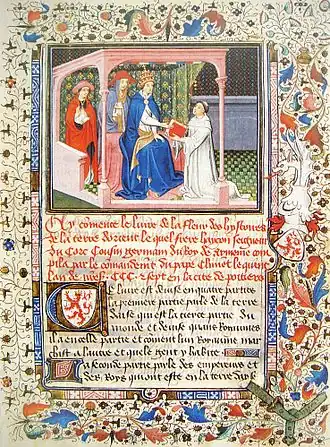 Cy comence le livre de la fleur des hystoires
de la terre dorient le quel frere hayton seigneur
du Corc Cousin germain du Roy de armenie com
pila par le comandement du pape Climent le quint
lan de nres. CCC. & sept en la cite de poitiers
Ce livre est devise en quatre parties
la premiere partie parle de la terre
dasie qui est la tierce partie du
monde et devise quans Roiaumes
il a en celle partie et coment lun Roiaume mar
chist a lautre et quele gent y habite
La seconde partie parle des empereurs et
des Roys qui ont este en la terre dasie